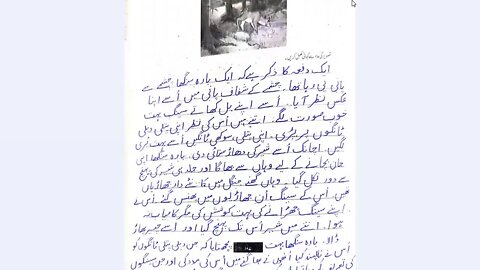 تصویر کی مدد سے کہانی مکمل کریں۔
ایک دفعہ کا ذکر ہے کہ ایک بارہ سنگھا چشمے سے
پانی پی رہا تھا۔ چشمے کے شفاف پانی میں اُسے اپنا
عکس نظر آیا۔ اُسے اپنے بل کھاتے سینگ بہت
خوب صورت لگے۔ اتنے میں اُس کی نظر اپنی پتلی دبلی
ٹانگوں پر پڑی۔ اپنی پتلی، سوکھی ٹانگیں اُسے بہت بُری
لگیں۔ اچانک اُسے شیر کی دھاڑ سنائی دی۔ بارہ سنگھا اپنی
جان بچانے کے لیے وہاں سے بھاگا اور جلد ہی شیر کی پہنچ
سے دور نکل گیا۔ وہاں گھنے جنگل میں کانٹے دار جھاڑیاں
تھیں۔ اُس کے سینگ اُن جھاڑیوں میں پھنس گئے۔ اُس نے
اپنے سینگ چھڑانے کی بہت کوشش کی مگر کامیاب نہ
ہوا۔ اتنے میں شیر اُس تک پہنچ گیا اور اُسے چیر پھاڑ
ڈالا۔ بارہ سنگھا بہت پچھتایا کہ جن دبلی پتلی ٹانگوں کو
اُس نے ناپسند کیا اُنھوں نے بھاگنے میں اُس کی مدد کی اور جن سینگوں
کی تعریف کی